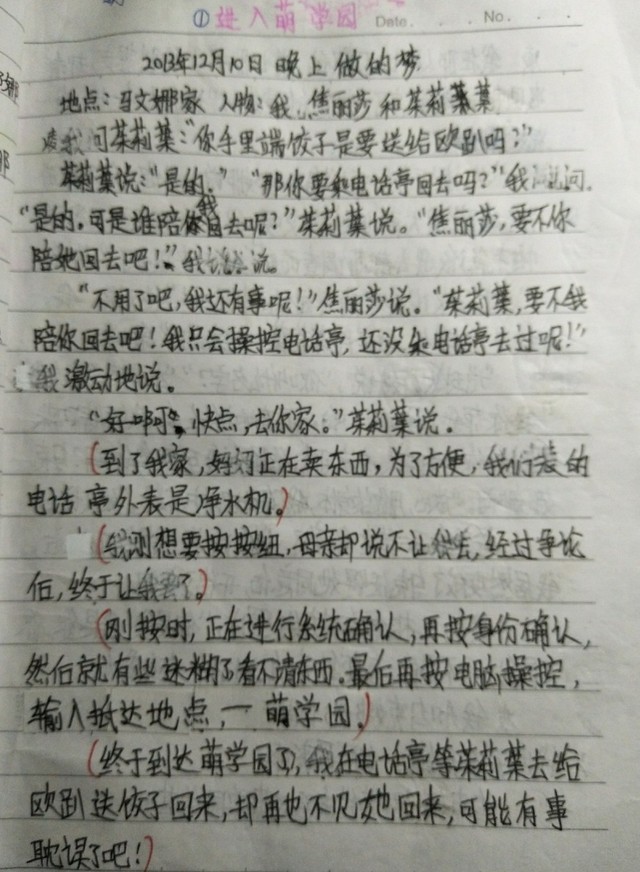 ①进入萌学园 Date. No.
2013年12月10日 晚上 做的梦
地点:马文娜家 人物:我,焦丽莎和茱莉叶
我问茱莉叶:“你手里端饺子是要送给欧趴吗?”
茱莉叶说:“是的。” “那你要乘电话亭回去吗?”我问。
“是的,可是谁陪我回去呢?”茱莉叶说。“焦丽莎,要不你
陪她回去吧!”我说。
“不用了吧,我还有事呢!”焦丽莎说。“茱莉叶,要不我
陪你回去吧!我只会操控电话亭,还没乘电话亭去过呢!”
我激动地说。
“好啊,快点,去你家。”茱莉叶说。
(到了我家,妈妈正在卖东西,为了方便,我们装的
电话亭外表是净水机。)
(我刚想要按按纽,母亲却说不让我去,经过争论
后,终于让我去了。)
(刚按时,正在进行系统确认,再按身份确认,
然后就有些迷糊了看不清东西。最后再按电脑操控,
输入抵达地点,一萌学园。)
(终于到达萌学园了,我在电话亭等茱莉叶去给
欧趴送饺子回来,却再也不见她回来,可能有事
耽误了吧!)